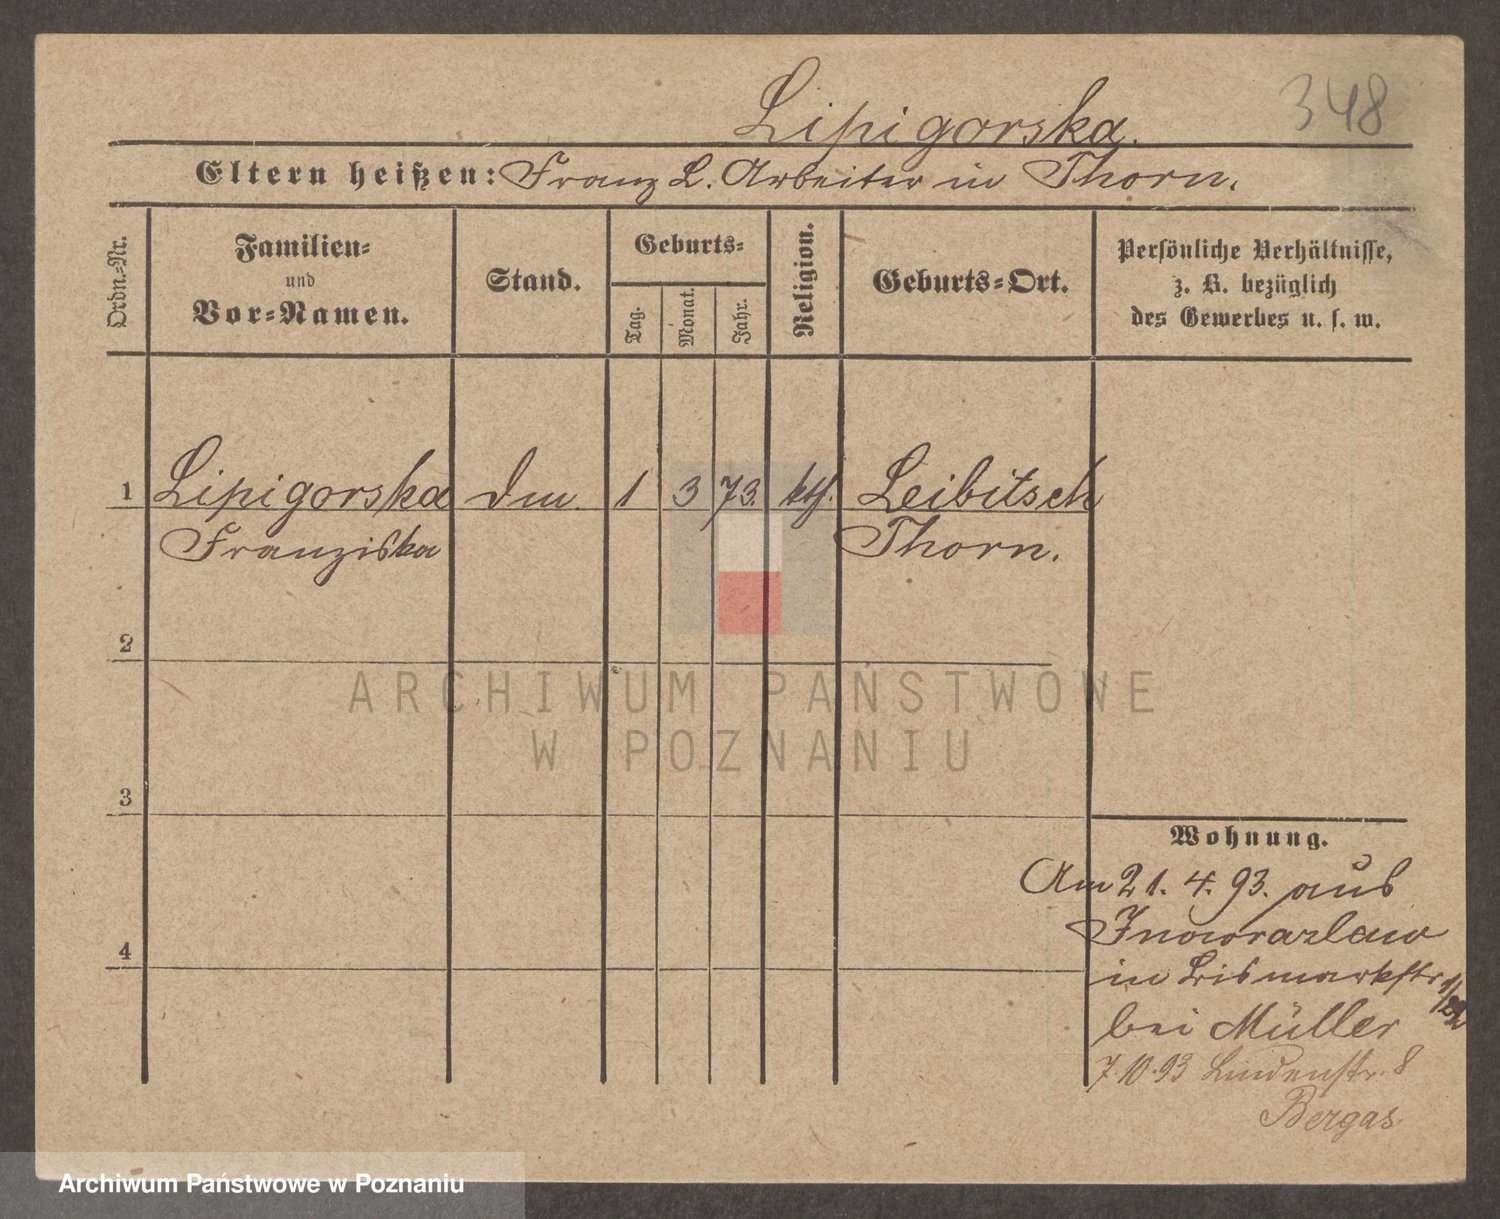 Lipigorska.
348
Eltern heißen: Franz L. Arbeiter in Thorn.
Ordn.-Nr.
Familien-
und
Vor-Namen.
Stand.
Geburts-
Tag.
Monat.
Jahr.
Religion.
Geburts-Ort.
Persönliche Verhältnisse,
z. B. bezüglich
des Gewerbes u. s. w.
1 Lipigorska Dm. 1 3 73. kth. Leibitsch
Franziska Thorn.
2
3
4
Wohnung.
Am 21. 4. 93. aus
Inowrazlaw
in Bismarkstr
bei Müller
7.10.93 Lindenstr. 8
Bergas.
ARCHIWUM PAŃSTWOWE
W POZNANIU
Archiwum Państwowe w Poznaniu